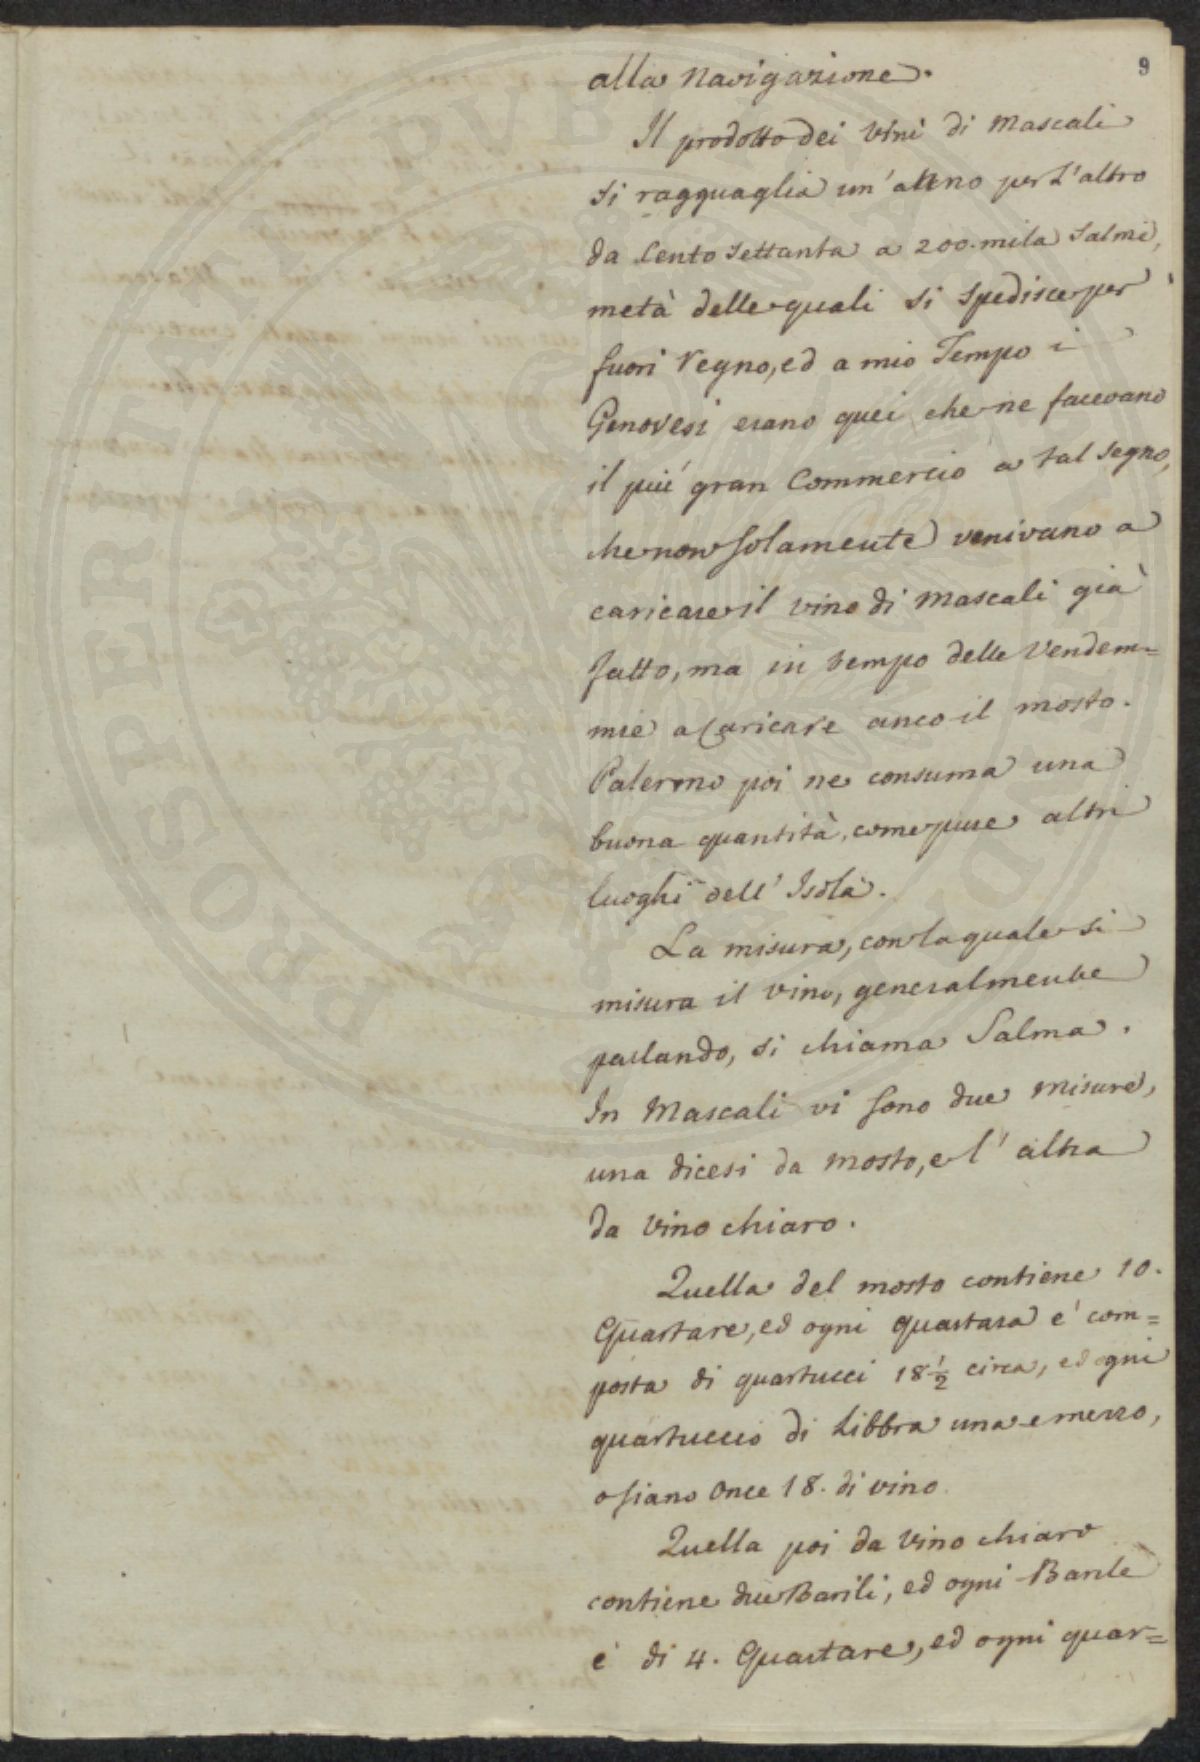 9
alla Navigazione.
Il prodotto dei Vini di Mascali
si ragguaglia un'anno per l'altro
da Cento Settanta a 200. mila Salme,
metà delle quali si spedisce per
fuori Regno, ed a mio Tempo i
Genovesi erano quei che ne facevano
il piú gran Commercio a tal segno,
che non solamente venivano a
caricare il vino di Mascali già
fatto, ma in tempo delle Vendem=
mie a Caricare anco il mosto.
Palermo poi ne consuma una
buona quantità, come pure altri
luoghi dell'Isola.
La misura, con la quale si
misura il vino, generalmente
parlando, si chiama Salma.
In Mascali vi sono due misure,
una dicesi da mosto, e l'altra
da Vino chiaro.
Quella del mosto contiene 10.
Quartare, ed ogni quartara e' com=
posta di quartucci 18 1/2 circa, ed ogni
quartuccio di Libbra una e mezzo,
o siano Once 18. di vino.
Quella poi da Vino chiaro
contiene due Barili, ed ogni Barile
è di 4. Quartare, ed ogni quar=
PROSPERITATI PUBLICAE AUGENDAE